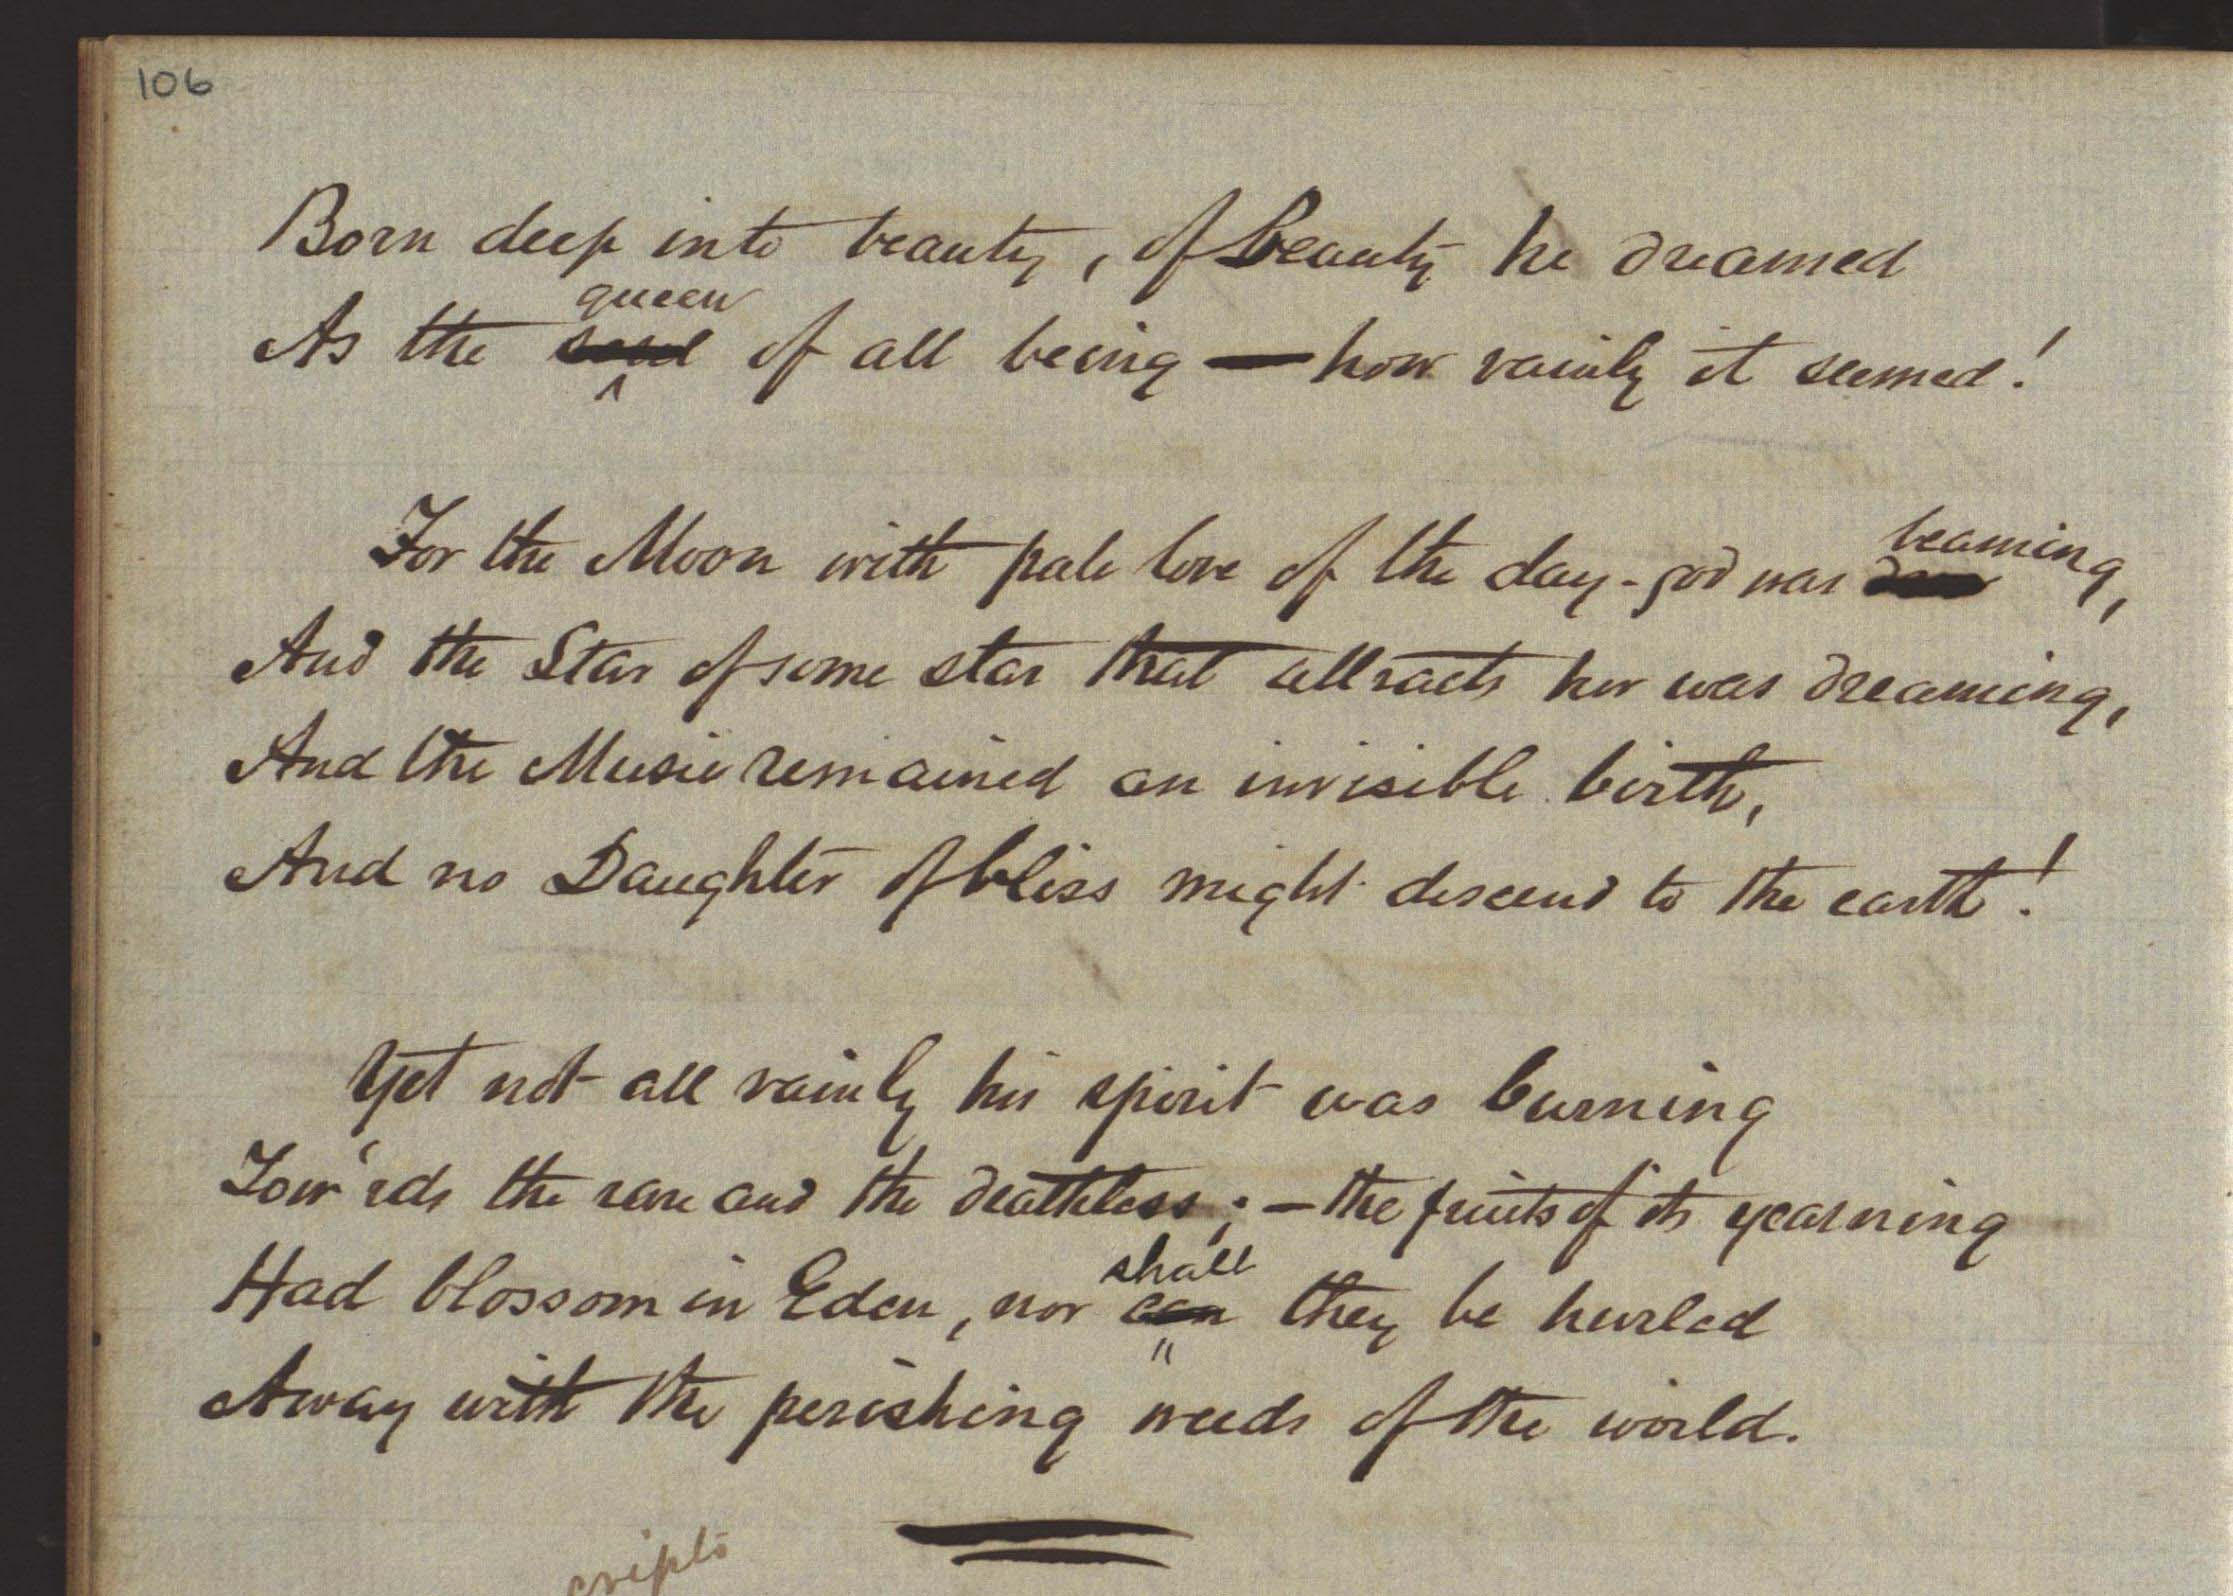 106
Born deep into beauty, of Beauty he dreamed
As the queen of all being — how vainly it seemed!
For the Moon with pale love of the day-god was beaming,
And the Star of some star that attracts her was dreaming,
And the Music remained an invisible birth,
And no Daughter of bliss might descend to the earth!
Yet not all vainly his spirit was burning
Tow'rds the rare and the deathless; — the fruits of its yearning
Had blossom in Eden, nor shall they be hurled
Away with the perishing weeds of the world.